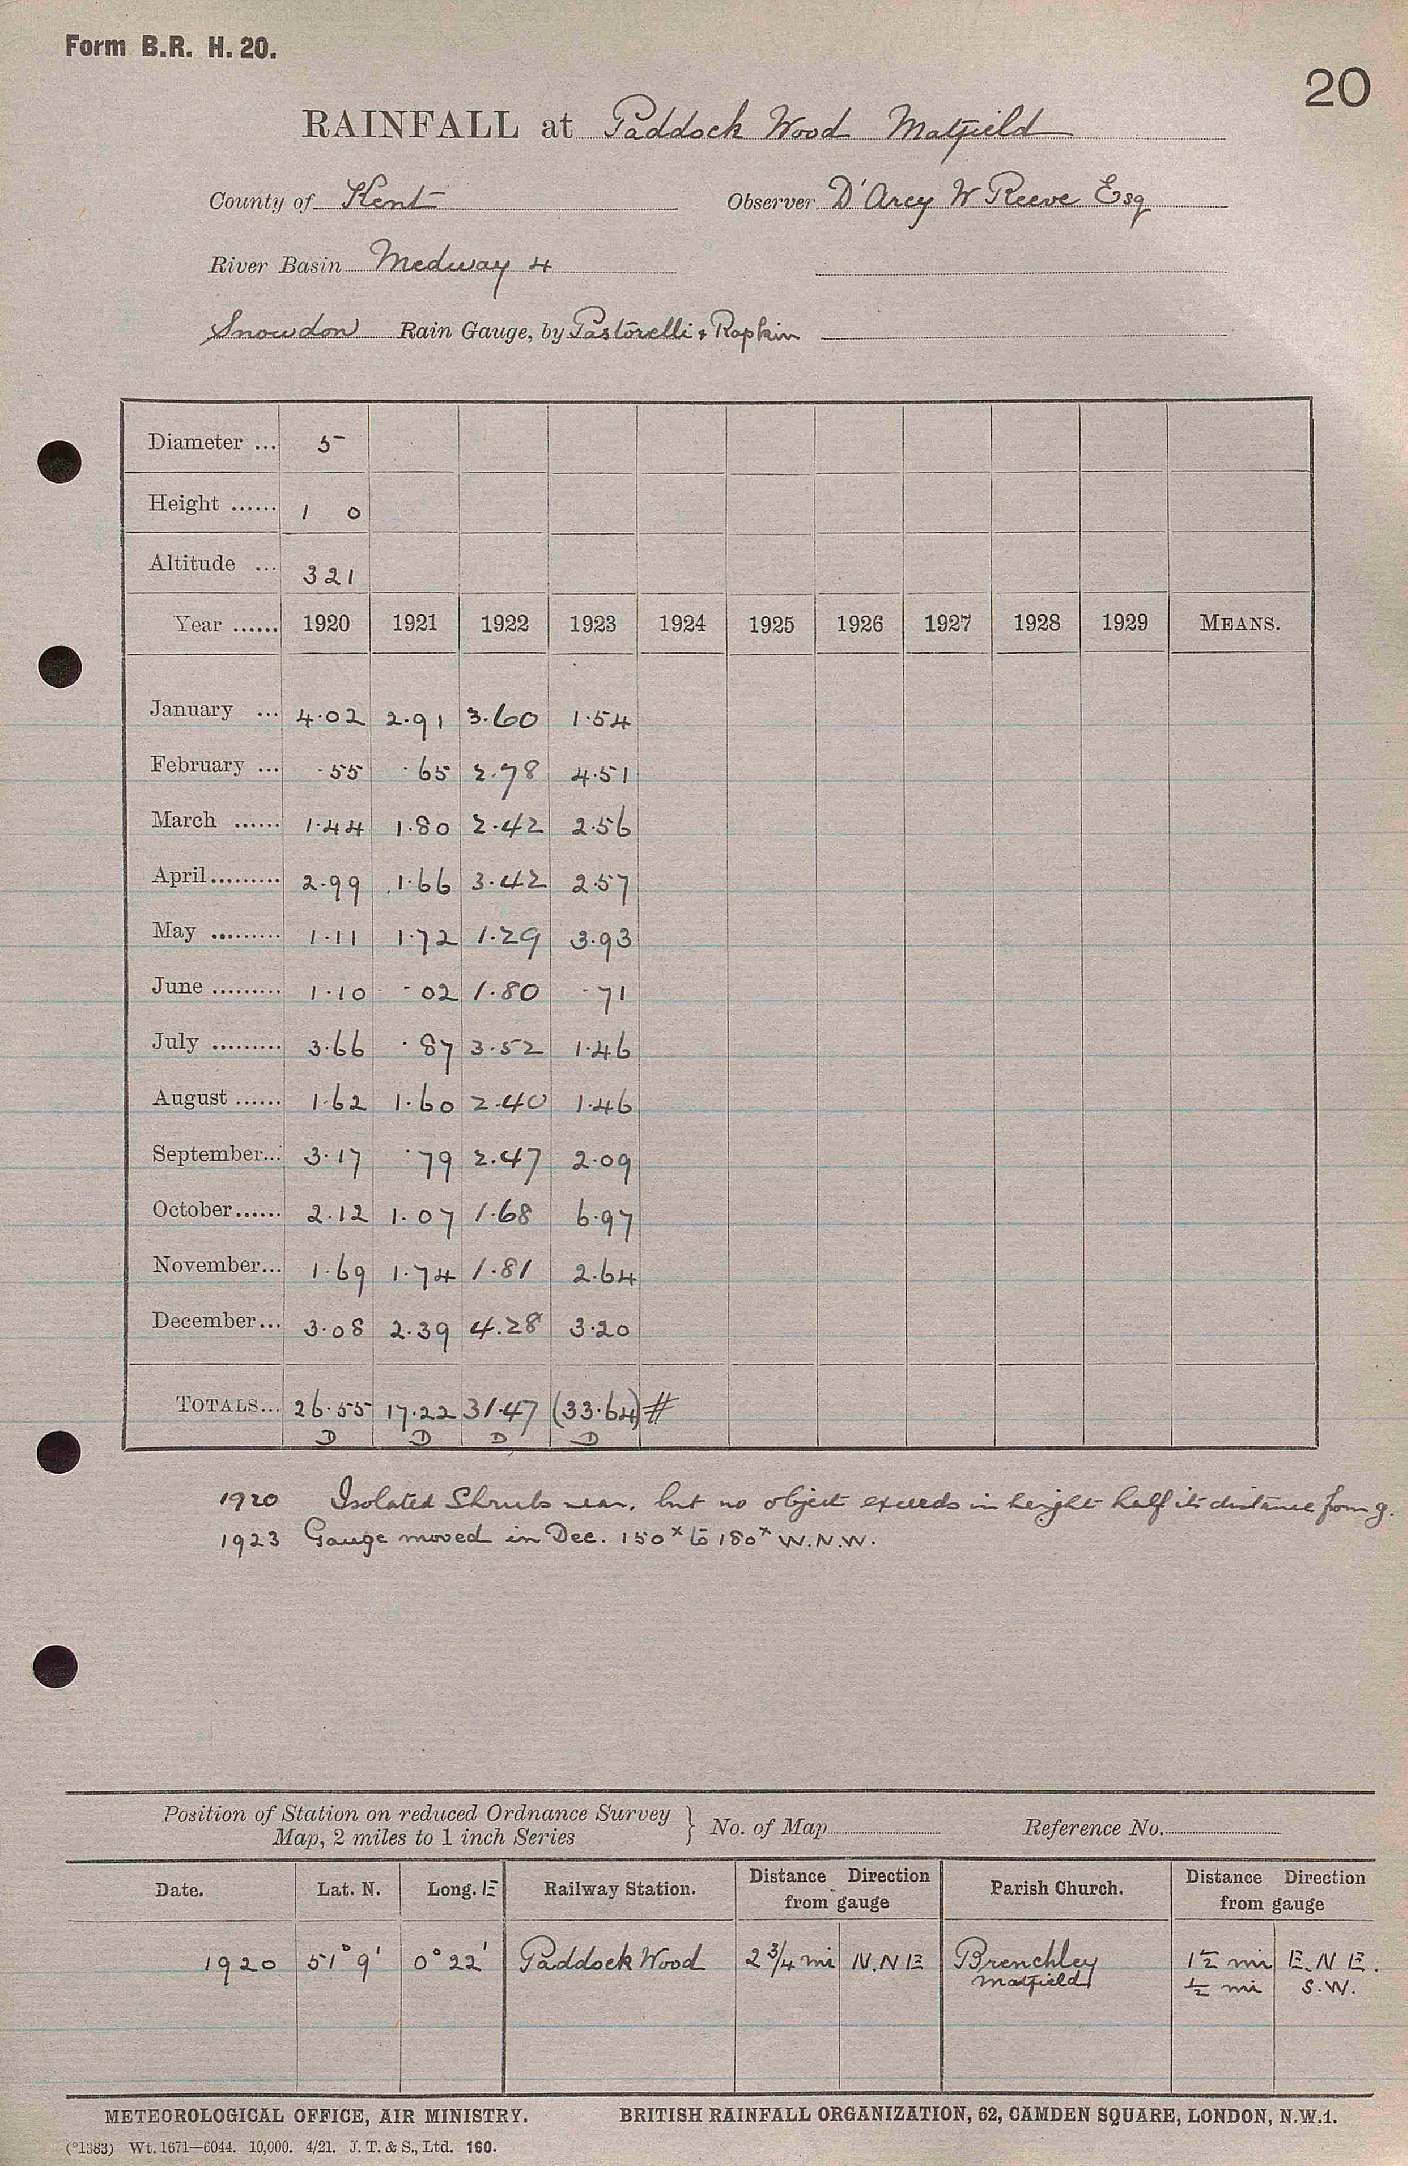 Form B.R. H. 20.
20
RAINFALL at Paddock Wood Matfield
County of Kent Observer D'Arcy W Reeve Esq
River Basin Medway 4
Snowdon Rain Gauge, by Pastorelli & Rapkin
Diameter ... 5
Height ...... 1 0
Altitude ... 321
Year ...... 1920 1921 1922 1923 1924 1925 1926 1927 1928 1929 MEANS.
January ... 4.02 2.91 3.60 1.54
February ... .55 .65 2.78 4.51
March ...... 1.44 1.80 2.42 2.56
April......... 2.99 1.66 3.42 2.57
May ......... 1.11 1.72 1.29 3.93
June ......... 1.10 .02 1.80 .71
July ......... 3.66 .87 3.52 1.46
August ...... 1.62 1.60 2.40 1.46
September... 3.17 .79 2.47 2.09
October...... 2.12 1.07 1.68 6.97
November... 1.69 1.74 1.81 2.64
December... 3.08 2.39 4.28 3.20
TOTALS... 26.55 17.22 31.47 (33.64) #
D D D D
1920 Isolated Shrubs near, but no object exceeds in height half its distance from g.
1923 Gauge moved in Dec. 150x to 180x W.N.W.
Position of Station on reduced Ordnance Survey
Map, 2 miles to 1 inch Series } No. of Map Reference No.
Date. Lat. N. Long. E Railway Station. Distance Direction from gauge Parish Church. Distance Direction from gauge
1920 51° 9' 0° 22' Paddock Wood 2 3/4 mi N.N E Brenchley 1 1/2 mi E.N E.
Matfield 1/2 mi S.W.
METEOROLOGICAL OFFICE, AIR MINISTRY. BRITISH RAINFALL ORGANIZATION, 62, CAMDEN SQUARE, LONDON, N.W.1.
(*1383) Wt. 1671—6044. 10,000. 4/21. J. T. & S., Ltd. 160.